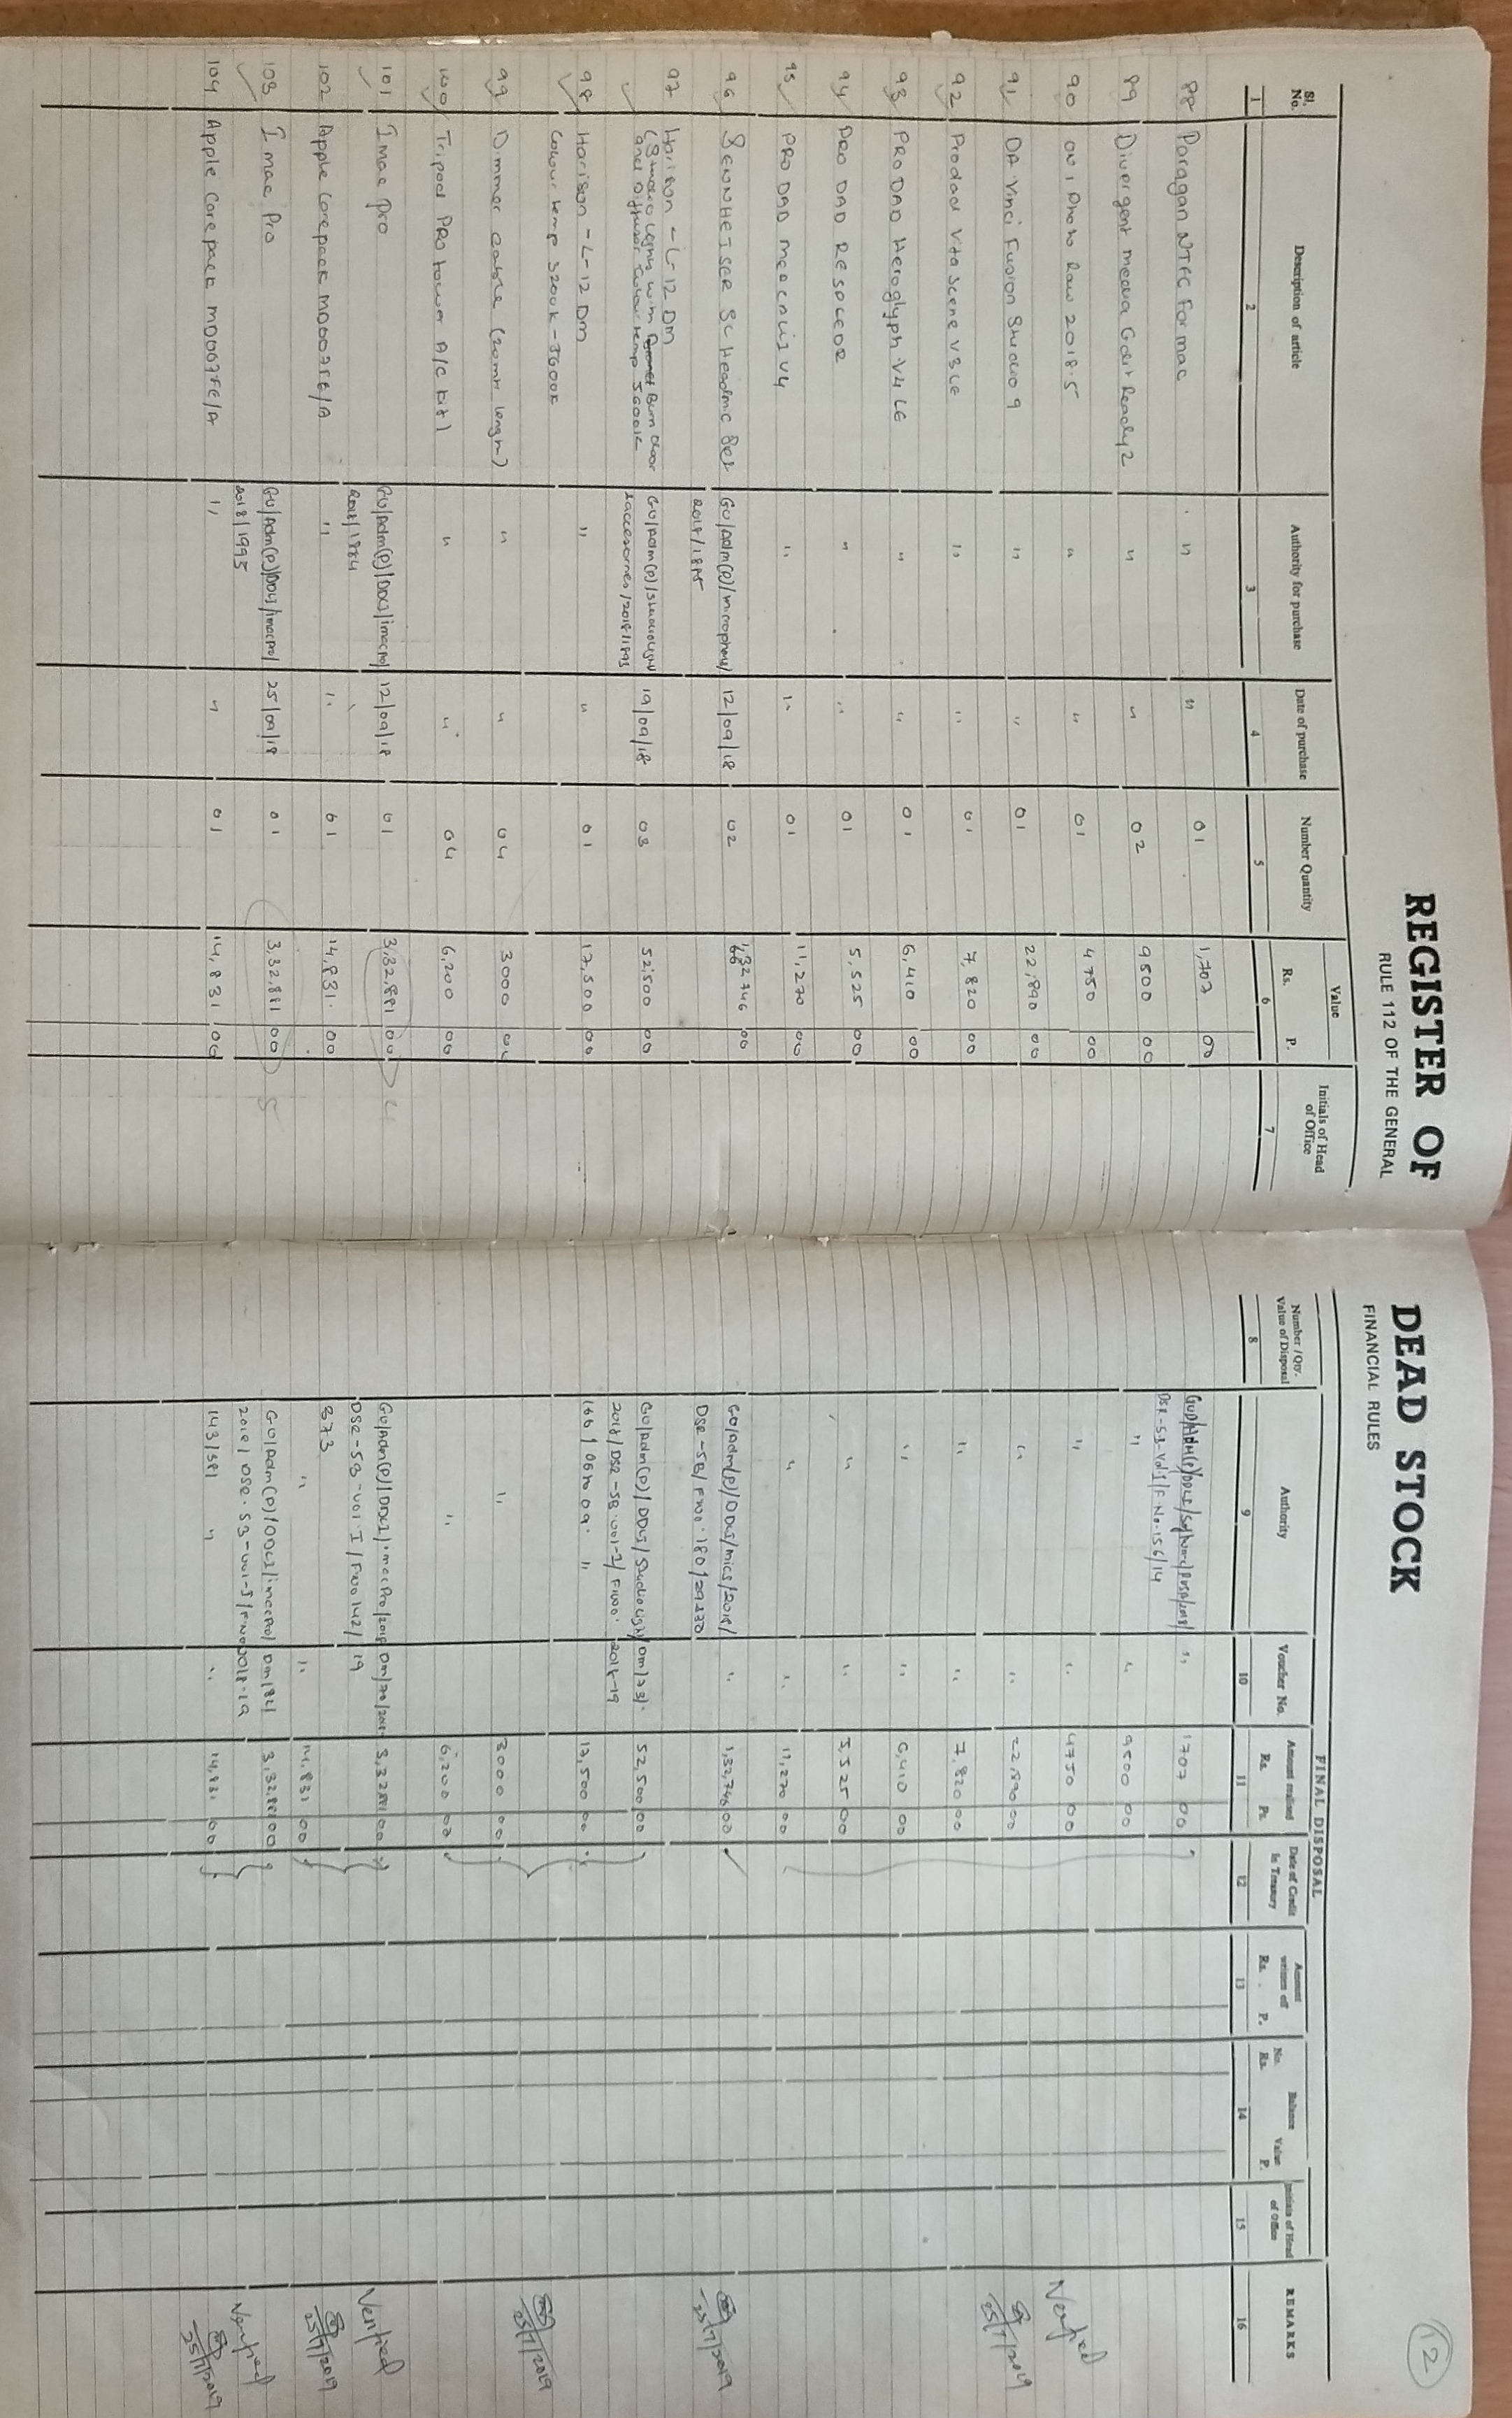 REGISTER OF DEAD STOCK
RULE 112 OF THE GENERAL FINANCIAL RULES
12
Sl. No. Description of article Authority for purchase Date of purchase Number Quantity Value Rs. P. Initials of Head of Office
FINAL DISPOSAL
Number / Qty. Value of Disposal Authority Voucher No. Amount realised Rs. Ps. Date of Credit in Treasury Amount written off Rs. P. Balance No. Rs. Value P. Initials of Head of Office REMARKS
1 2 3 4 5 6 7 8 9 10 11 12 13 14 15 16
88 Paragan NTFC For mac " " 01 1,707 00 " 1707 00
DSR-SB-Vol-I/F.No.156/14
89 Divergent media Edit Ready 2 " " 02 9500 00 " " 9500 00
90 ON 1 Photo Raw 2018.5 " " 01 4750 00 " " 4750 00 Verified
91 DA Vinci Fusion Studio 9 " " 01 22,890 00 " " 22,890 00 25/7/2019
92 Prodad Vita Scene V3 LE " " 01 7,820 00 " " 7,820 00
93 PRODAD Heroglyph V4 LE " " 01 6,410 00 " " 6,410 00
94 PRO DAD RESPEEDR " " 01 5,525 00 " " 5,525 00
95 PRO DAD Mercalli V4 " " 01 11,270 00 " " 11,270 00
96 SENNHEISER SC Headmic Set GU/Adm(P)/microphone/ 12/09/18 02 1,32,746 00 GU/Adm(P)/DDCI/mics/2018/ " 1,32,746 00 25/7/2019
2018/1875 DSR-SB/F.No.180/
97 Horison-L-12 DM
(Studio Lights with Barn door GU/Adm(P)/Studiolight 19/09/18 03 52,500 00 GU/Adm(P)/DDCI/Studio light/ DM/73/ 52,500 00
and Diffuser Colour temp 5600K accessories/2018/1893 2018/DSR-SB-Vol-I/F.No. 2018-19
98 Horison-L-12 DM " " 01 17,500 00 " 17,500 00
Colour temp 3200K-5600K 25/7/2019
99 Dimmer cable (20mtr length) " " 04 3000 00 " 3000 00
100 Tripod PRO tower A/C kit) " " 04 6,200 00 " 6,200 00
101 I mac Pro GU/Adm(P)/DDCI/imacpro/ 12/09/18 01 3,32,881 00 GU/Adm(P)/DDCI/imacPro/2018 DM/70/2018- 3,32,881 00 Verified
2018/1884 DSR-SB-Vol.I/F.No 142/ 19
102 Apple Corepack MD007FE/A " " 01 14,831 00 373 " " 14,831 00 25/7/2019
103 I mac Pro GU/Adm(P)/DDCI/imacpro/ 25/09/18 01 3,32,881 00 GU/Adm(P)/DDCI/imacpro/ DM/84/ 3,32,881 00 Verified
2018/1995 2018/DSR-SB-Vol-I/F.No 2018-19
104 Apple Corepack MD007FE/A " " 01 14,831 00 143/581 " " 14,831 00 25/7/2019